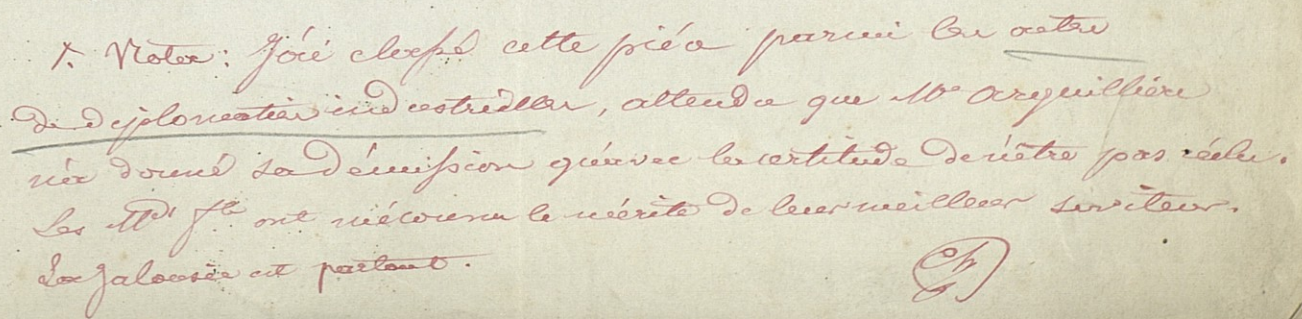 1. Nota : J'ai classé cette pièce parmi les actes
de diplomatie industrielle, attendu que Mr Arquillière
n'a donné sa démission qu'avec la certitude de n'être pas réélu.
Les Mds fts ont méconnu le mérite de leur meilleur serviteur.
La jalousie est partout.